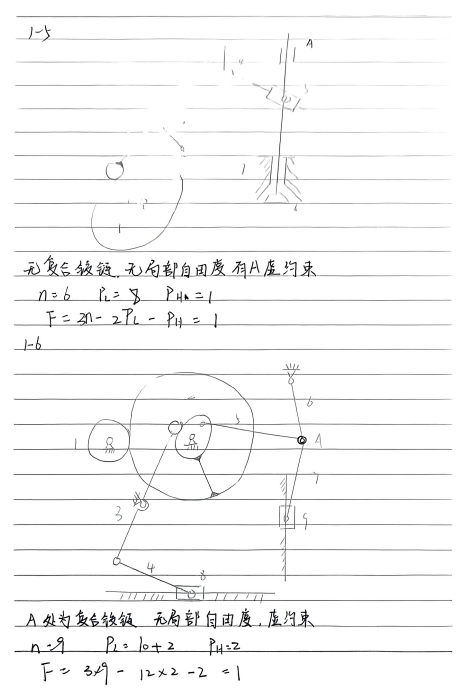 1-5
A
1
1
6
无复合铰链,无局部自由度 有A虚约束
n=6 PL=8 PH=1
F=3n-2PL-PH=1
1-6
6
5
A
1
7
9
3
4
8
A处为复合铰链 无局部自由度,虚约束
n=9 PL=10+2 PH=2
F=3×9-12×2-2=1